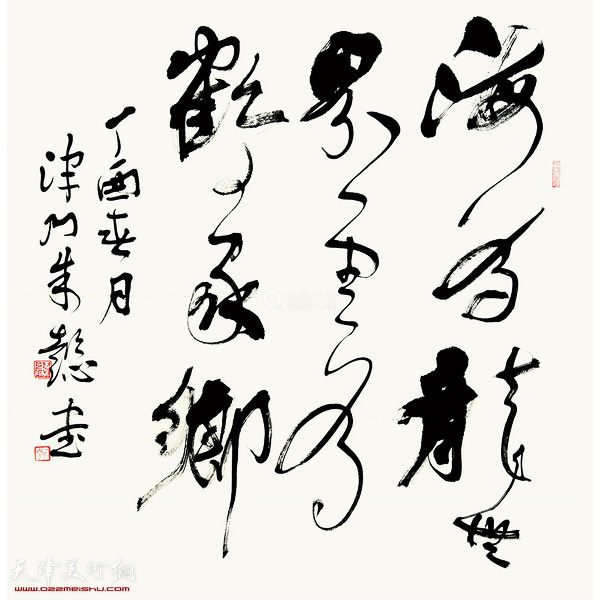 海为龍世
界雲为
鶴家鄉
丁酉春月
津门朱懿书
天津美术网
www.022meishu.com